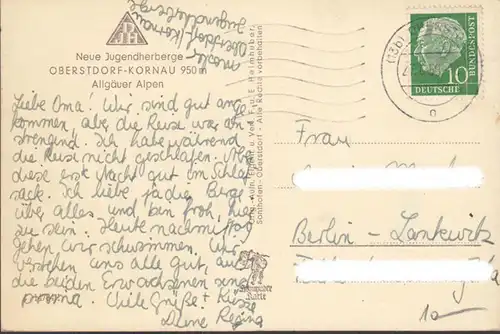 Neue Jugendherberge
OBERSTDORF-KORNAU 950 m
Allgäuer Alpen
Liebe Oma! Wir sind gut ange
kommen, aber die Reise war an
strengend. Ich habe während
die Reise nicht geschlafen. Nur
diese erste Nacht gut im Schlaf
sack. Ich liebe ja die Berge
über alles, und bin froh, hier
zu sein. Heute nachmittag
gehen wir schwimmen. Wir
verstehen uns alle gut, auch
die beiden Erwachsenen sind
prima. Viele Grüße + Küsse
Deine Regina
Oberstdorf/Kornau
Jugendherberge
Orig.-Aufn., Eigent. u. Verl. F. u. E. Heimhuber,
Sonthofen-Oberstdorf - Alle Rechte vorbehalten
(13b)
10
DEUTSCHE
BUNDESPOST
Frau
Berlin-Lankwitz